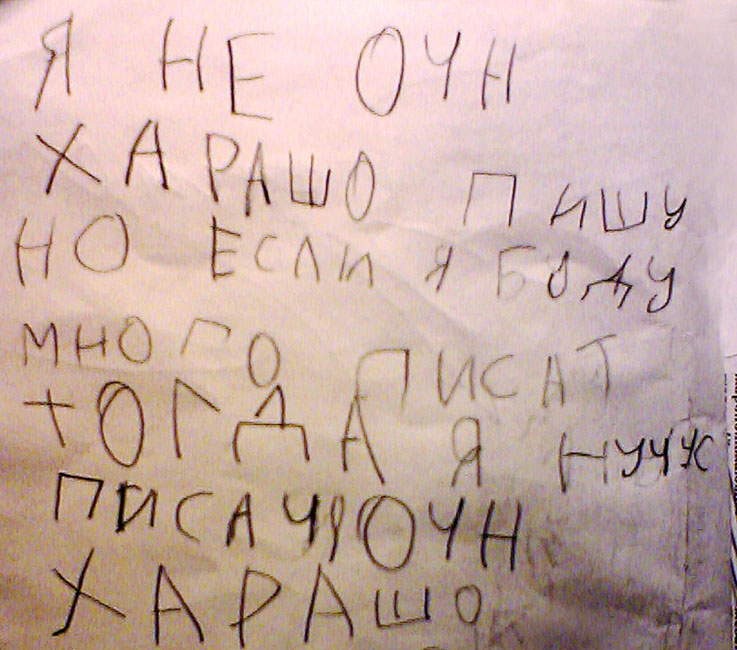 Я НЕ ОЧН
ХАРАШО ПИШУ
НО ЕСЛИ Я БОДУ
МНОГО ПИСАТ
ТОГДА Я НУЧУС
ПИСАЧЯ ОЧН
ХАРАШО